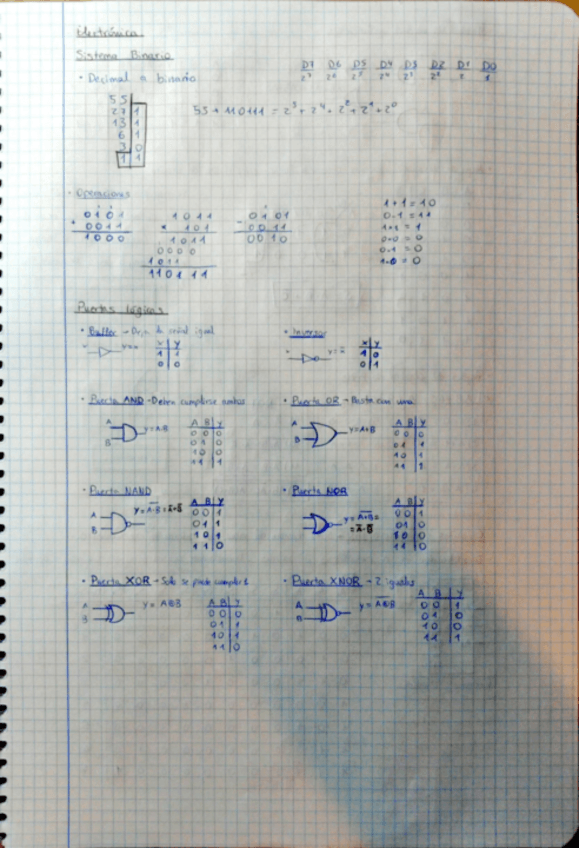 Electrónica
Sistema Binario
D7 D6 D5 D4 D3 D2 D1 D0
2⁷ 2⁶ 2⁵ 2⁴ 2³ 2² 2 1
· Decimal a binario
55
27 1
13 1
6 1
3 0
1 1
55 → 110111 = 2⁵ + 2⁴ + 2² + 2¹ + 2⁰
· Operaciones
0101
+ 0011
1000
1011
× 101
1011
0000
1011
110111
0101
- 0011
0010
1+1=10
0-1=11
1×1=1
0×0=0
0×1=0
1×0=0
Puertas lógicas
· Buffer - Deja la señal igual
y=x
x y
1 1
0 0
· Inversor
y=x̅
x y
1 0
0 1
· Puerta AND - Deben cumplirse ambos
A
B
y=A·B
A B Y
0 0 0
0 1 0
1 0 0
1 1 1
· Puerta OR - Basta con uno
A
B
y=A+B
A B Y
0 0 0
0 1 1
1 0 1
1 1 1
· Puerta NAND
A
B
y=A̅·̅B̅=A̅+B̅
A B Y
0 0 1
0 1 1
1 0 1
1 1 0
· Puerta NOR
y=A̅+̅B̅=
=A̅·B̅
A B Y
0 0 1
0 1 0
1 0 0
1 1 0
· Puerta XOR - Solo se puede cumplir 1
A
B
y=A⊕B
A B Y
0 0 0
0 1 1
1 0 1
1 1 0
· Puerta XNOR - 2 iguales
A
B
y=A̅⊕̅B̅
A B Y
0 0 1
0 1 0
1 0 0
1 1 1